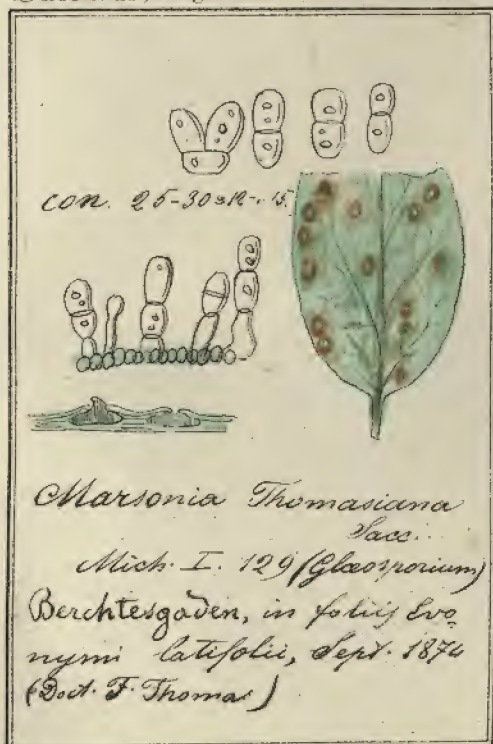 con. 25-30=12-15
Marsonia Thomasiana
Sacc.
Mich. I. 129 (Glœosporium)
Berchtesgaden, in foliis Evo-
nymi latifolii, Sept. 1874
(Doct. F. Thomas)